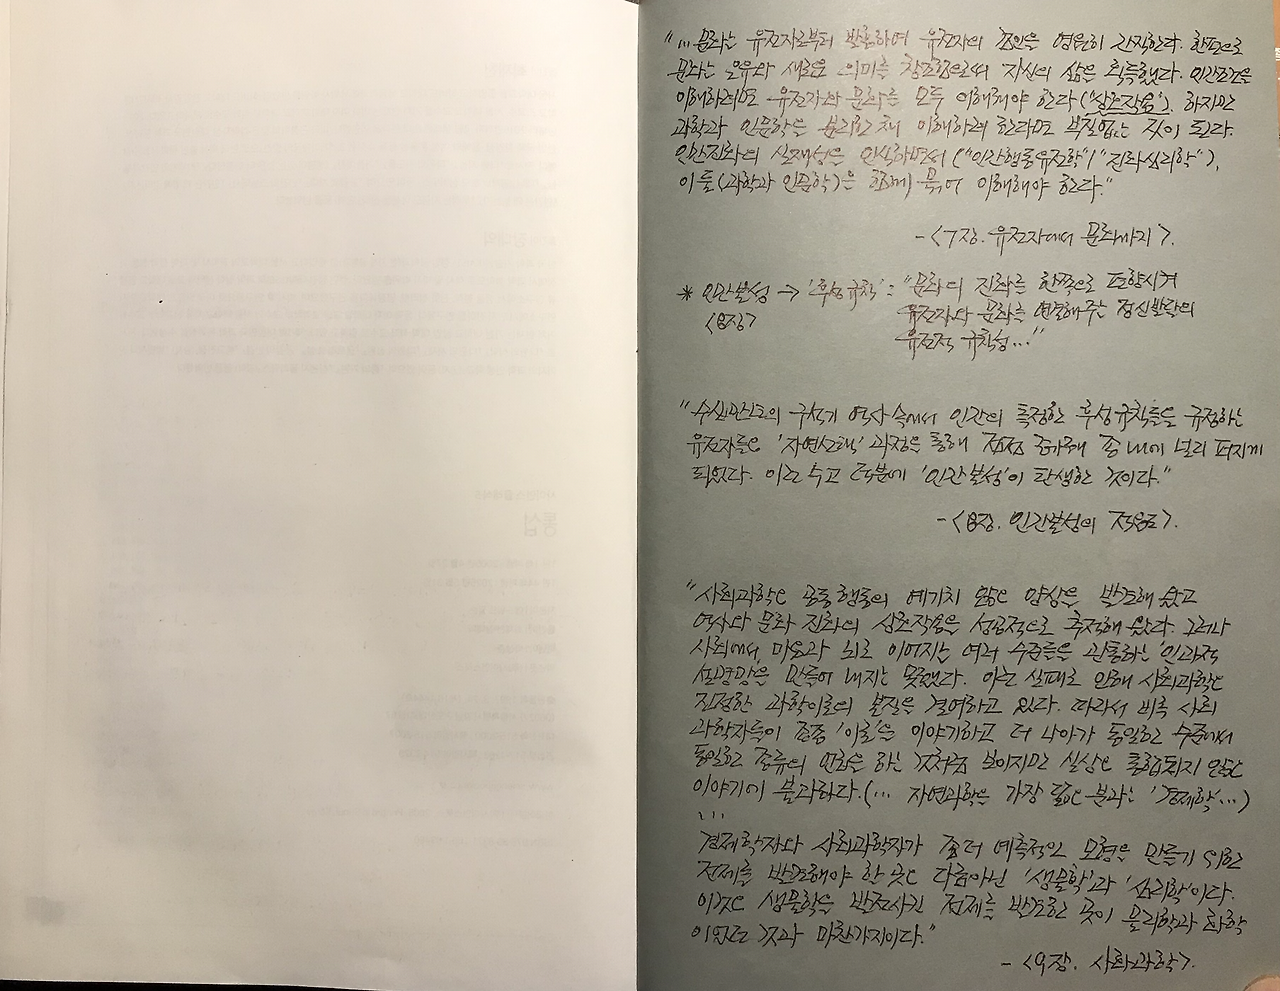 "...문화는 유전자로부터 발흥하여 유전자의 조인을 영원히 간직한다. 한편으로
문화는 은유와 새로운 의미를 창조함으로써 자신의 삶을 획득했다. 인간조건을
이해하려면 유전자와 문화를 모두 이해해야 한다("상호작용"). 하지만
과학과 인문학을 분리한 채 이해하려 한다면 부질없는 짓이 된다.
인간진화의 실재성을 인식하면서 ("인간행동유전학"/"진화심리학"),
이 둘(과학과 인문학)을 함께 묶어 이해해야 한다."
- <7장. 유전자에서 문화까지>.
* 인간본성 → '후성규칙' : "문화의 진화를 한쪽으로 편향시켜
<8장> 유전자와 문화를 연결해주는 정신발달의
유전적 규칙성..."
"수십만년의 구석기 역사 속에서 인간의 특정한 후성규칙들을 규정하는
유전자들은 '자연선택' 과정을 통해 점점 증가해 종 내에 널리 퍼지게
되었다. 이런 수고 덕분에 '인간본성'이 탄생한 것이다."
- <8장. 인간본성의 적응도>.
"사회과학은 공동행동의 예기치 않은 양상을 발견해 왔고
역사와 문화 진화의 상호작용을 성공적으로 추적해 왔다. 그러나
사회에서, 마음과 뇌로 이어지는 여러 수준들을 관통하는 '인과적
설명망'을 만들어 내지는 못했다. 이런 실패로 인해 사회과학은
진정한 과학이론의 본질을 결여하고 있다. 따라서 비록 사회
과학자들이 종종 '이론'을 이야기하고 더 나아가 동일한 수준에서
동일한 종류의 현상을 하는 것처럼 보이지만 실상은 통합되지 않은
이야기에 불과하다.(... 자연과학을 가장 닮은 분과는 '경제학'...)
...
경제학자와 사회과학자가 좀 더 예측적인 모형을 만들기 위한
전제를 발견해야 할 곳은 다름아닌 '생물학'과 '심리학'이다.
이것은 생물학을 발전시킨 전제를 발견한 곳이 물리학과 화학
이었던 것과 마찬가지이다."
- <9장. 사회과학>.